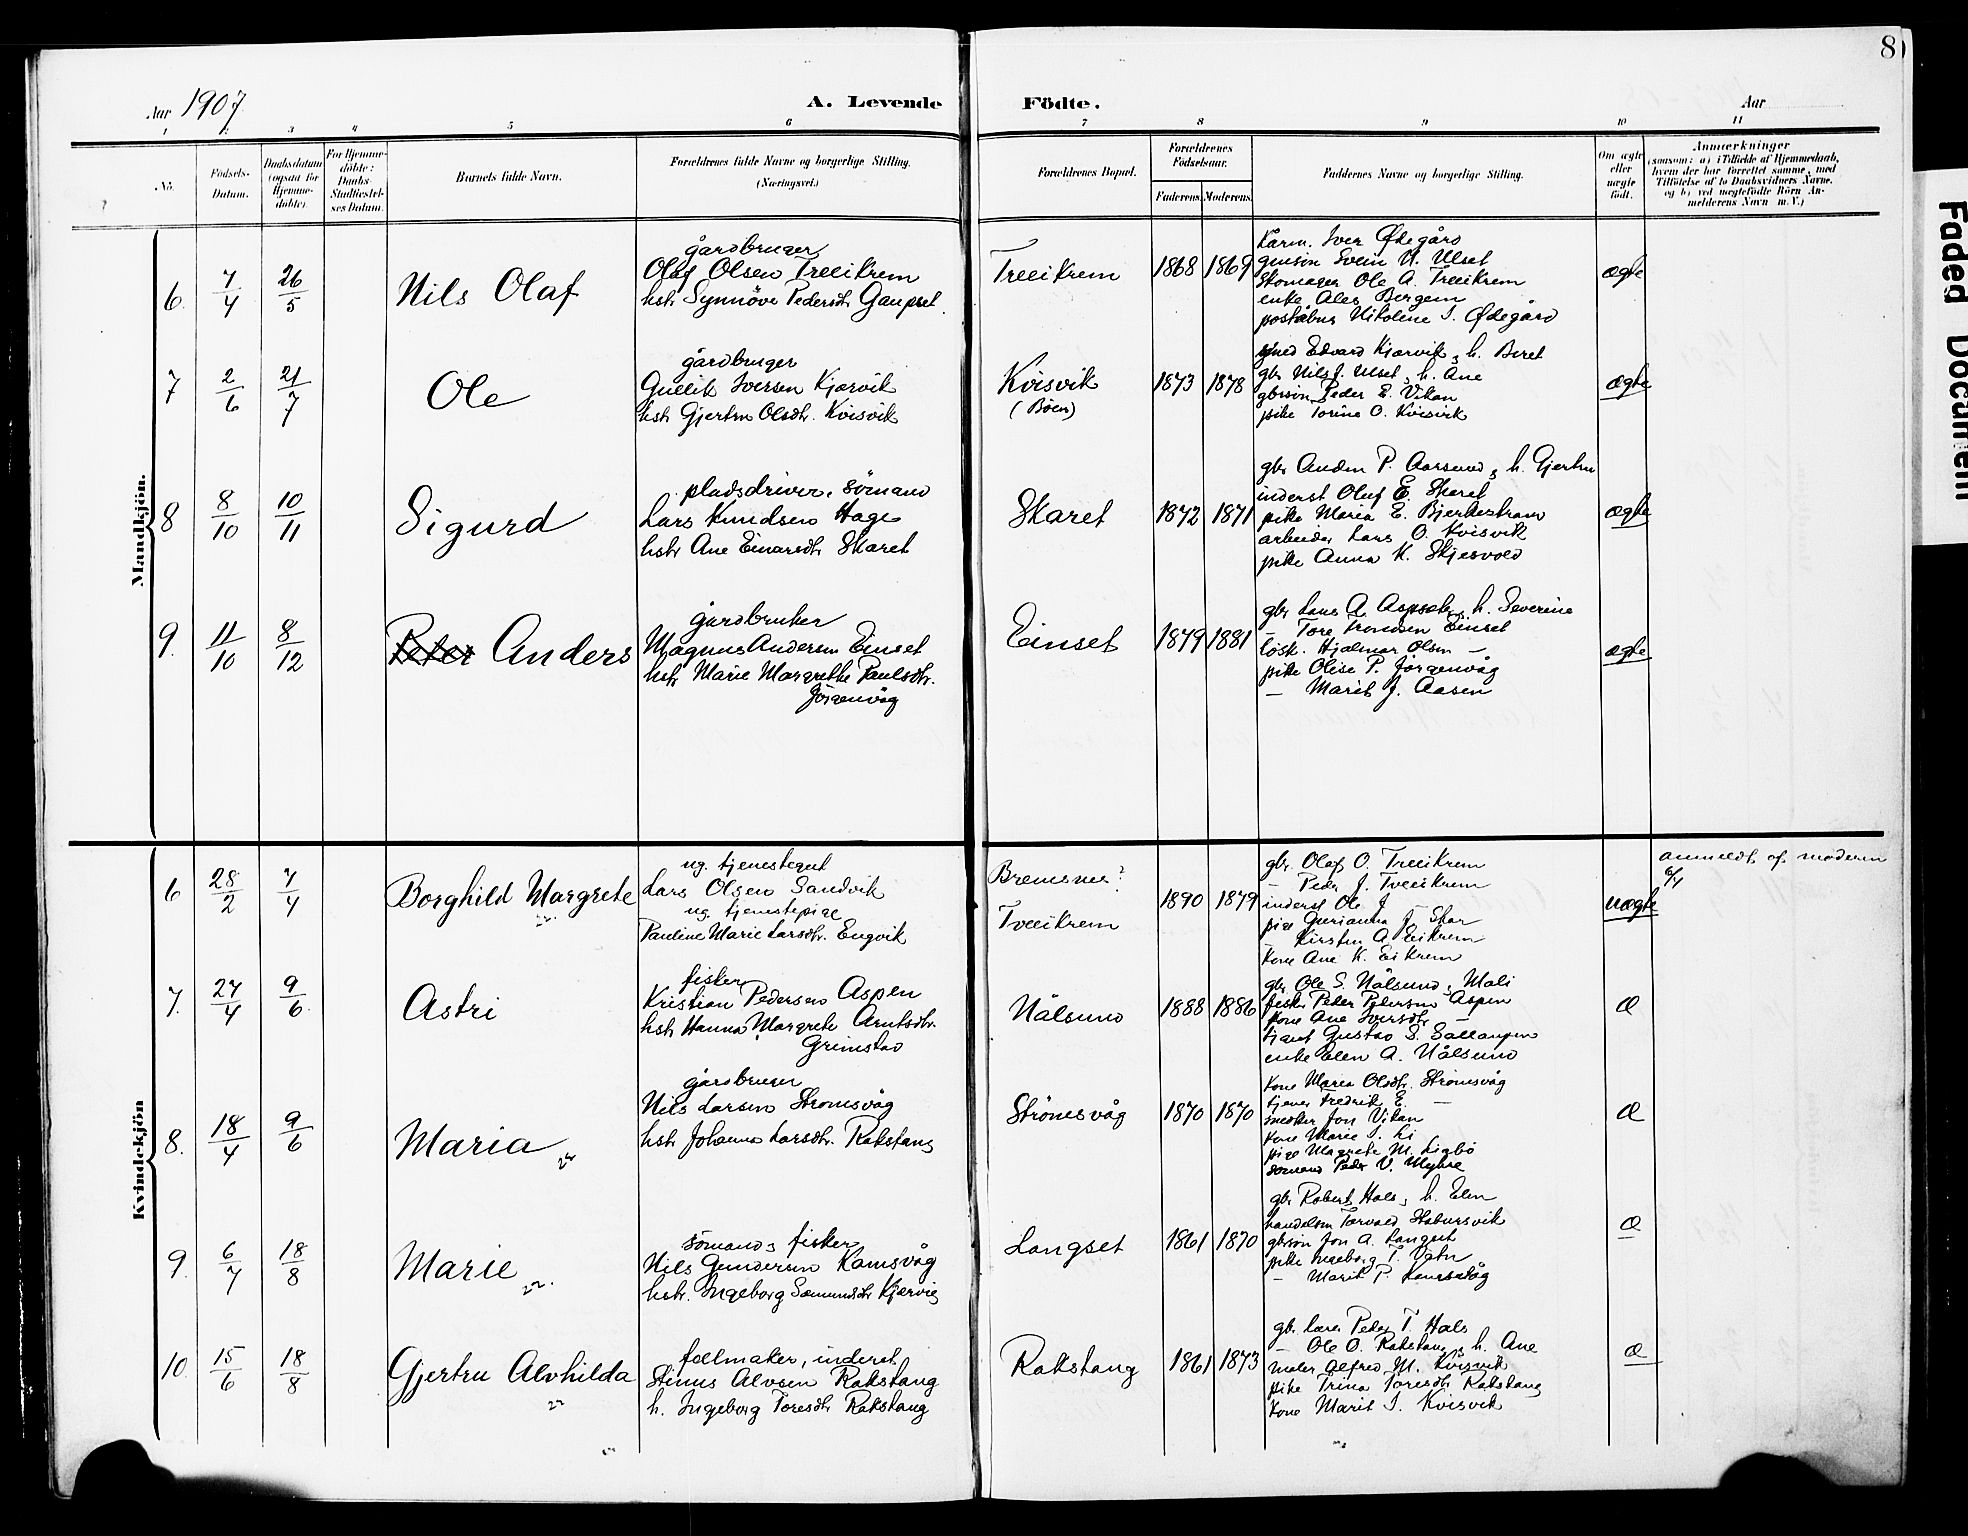 8
Aar 1907.
A. Levende Födte.
Aar
1 2 3 4 5 6 7 8 9 10 11
No.
Födsels-
Datum.
Daabsdatum
(ogsaa for
Hjemme-
döbte).
For Hjemme-
döbte:
Daabs-
Stadfæstel-
ses Datum.
Barnets fulde Navn.
Forældrenes fulde Navne og borgerlige Stilling.
(Næringsvei.)
Forældrenes Bopæl.
Forældrenes
Födselsaar.
Faderens. Moderens.
Faddernes Navne og borgerlige Stilling.
Om ægte
eller
uægte
födt.
Anmærkninger
(saasom: a) i Tilfælde af Hjemmedaab,
hvem der har forrettet samme, med
Tilföielse af to Daabsvidners Navne.
og b) ved uægtefödte Börn An-
melderens Navn m. V.)
Mandkjön.
6. 7/4 26/5 Nils Olaf
gårdbruger
Olaf Olsen Tveeikrem
hstr Synnöve Pedersdtr Gaupset.
Tveeikrem 1868 1869
Kårm. Iver Ødegård
gmsön Svein N. Ulset
Skomager Ole A. Tveeikrem
enke Ales Bergem
poståbns Nikoline I. Ødegård
ægte
7 2/6 21/7 Ole
gårdbruger
Gullik Iversen Kjørvik
hstr Gjertru Olsdtr. Kvisvik
Kvisvik
(Böen)
1873 1878
smed Edvard Kjørvik, h. Beret
gbr Nils J. Ulset, h. Ane
gbrsön Peder E. Vikan
pike Torine O. Kvisvik
ægte
8 8/10 10/11 Sigurd
pladsdriver, sömand
Lars Knudsen Hage
hstr Ane Einarsdtr Skaret
Skaret 1872 1871
gbr Anders P. Aarsund, h. Gjertru
inderst Oluf E. Skaret
pike Maria E. Bjerkestrand
arbeider Lars O. Kvisvik
pike Anna K. Skjesvold
ægte
9. 11/10 8/12 Peter Anders
gårdbruker
Magnus Andersen Einset
hstr Marie Margrethe Paulsdtr.
Jörgenvåg
Einset 1879 1881
gbr Lars A. Aspset, h. Severine
– Tore Trondsen Einset
lösk. Hjalmar Olsen –
pike Olise P. Jörgenvåg
– Marit J. Aasen
ægte
Kvindekjön
6 28/2 7/4 Borghild Margrete
ug. tjenestegut
Lars Olsen Sandvik
ug. tjenestepige
Pauline Marie Larsdtr. Engvik
Bremsnes?
Tveeikrem
1890 1879
gbr. Olaf O. Tveeikrem
– Peder J. Tveeikrem
inderst Ole J. –
pige Gurianna J. Skar
– Kirsten A. Eikrem
Kone Ane K. Eikrem
uægte
anmeldt af moderen
7. 27/4 9/6. Astri
fisker
Kristian Pedersen Aspen
hstr Hanna Margrete Arntsdtr.
Grimstad
Nålsund 1888 1886
gbr Ole S. Nålsund, Mali
fisker Peder Pedersen Aspen
Kone Ane Iversdtr –
tjgut Gustav S.
enke Elen A. Nålsund
Æ
8. 18/4 9/6 Maria
gårdbruger
Nils Larsen Strömsvåg
hstr Johanna Larsdtr. Rakstang
Strömsvåg 1870 1870
Kone Maren Olsdtr. Strömsvåg
tjener Fredrik E. –
snekker Jon Vikan
Kone Marie I. Li
pige Magrete M. Ligbö
sömand Peder V. Myhre
Æ
9. 6/7 18/8 Marie
sömand, fisker
Nils Gundersen Kamsvåg
hstr. Ingeborg Sæmundsdtr Kjørvig
Langset 1861 1870
gbr Robert Hals, h. Elen
handelsm Torvald Stabursvik
gbrsön Jon A. Langset
pike Ingeborg T. Vatn
– Marit P. Kamsvåg
Æ
10. 15/6 18/8 Gjertru Alvhilda
fellmaker, inderst
Stinus Alvsen Rakstang
h. Ingeborg Toresdtr Rakstang
Rakstang 1861 1873
gbr. Lars Peder T. Hals
– Ole O. Rakstang, h. Ane
maler Alfred M. Kvisvik
pike Trina Toresdtr Rakstang
Kone Marit I. Kvisvik
Æ
Faded Document